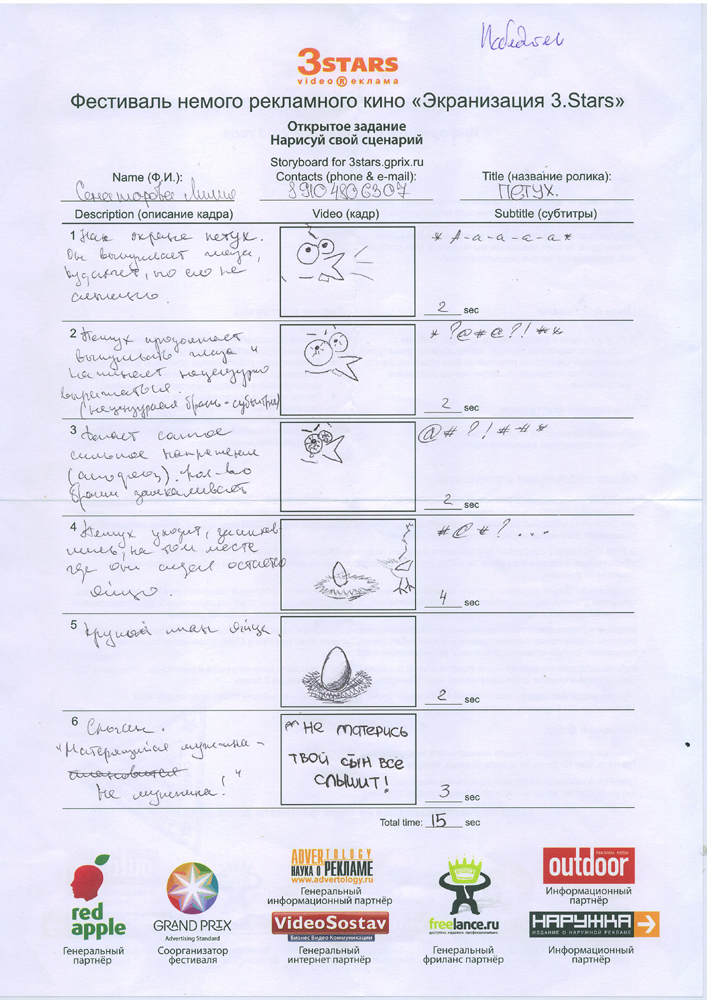 Победител
3STARS
video®еклама
Фестиваль немого рекламного кино «Экранизация 3.Stars»
Открытое задание
Нарисуй свой сценарий
Storyboard for 3stars.gprix.ru
Name (Ф.И.):
Contacts (phone & e-mail):
Title (название ролика):
89104806307
ПЕТУХ.
Description (описание кадра)
Video (кадр)
Subtitle (субтитры)
1 На экране петух.
Он выпучивает глаза,
кудахчет, но его не
слышно.
* А-а-а-а-а*
2 sec
2 Петух продолжает
выпучивать глаза и
начинает нецензурно
выражаться.
(нецензурная брань - субтитры)
* ?@#@?! **
2 sec
3
самое
сильное напряжение
(апофеоз). Кол-во
брани зашкаливает
@#?!###*
2 sec
4 Петух уходит,
на том месте
где он сидел остается
яйцо.
#@#? ...
4 sec
5 Крупный план яйца.
2 sec
6 Слоган.
"Матерящийся мужчина -
становится
не мужчина!"
"Не матерись
твой сын все
слышит!
3 sec
Total time: 15 sec
red
apple
Генеральный
партнёр
GRAND PRIX
Advertising Standard
Соорганизатор
фестиваля
ADVERTOLOGY
НАУКА О РЕКЛАМЕ
www.advertology.ru
Генеральный
информационный партнёр
VideoSostav
Бизнес Видео Коммуникации
Генеральный
интернет партнёр
freelance.ru
Генеральный
фриланс партнёр
outdoor
Информационный
партнёр
НАРУЖКА
ИЗДАНИЕ О НАРУЖНОЙ РЕКЛАМЕ
Информационный
партнёр